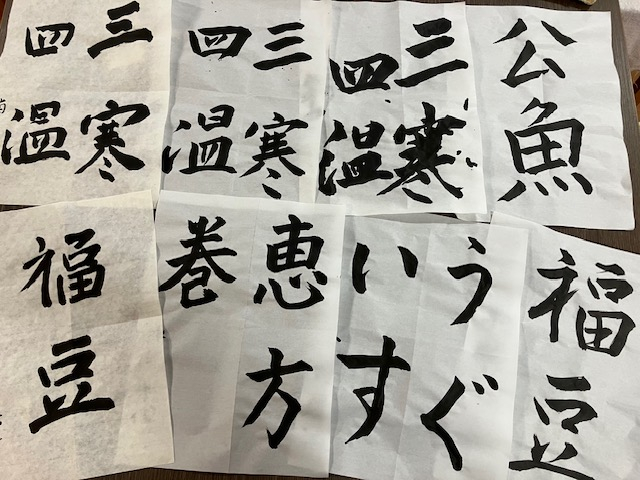 公魚
三寒
四温
三寒
四温
三寒
四温
福豆
うぐ
いす
恵方
巻
福豆